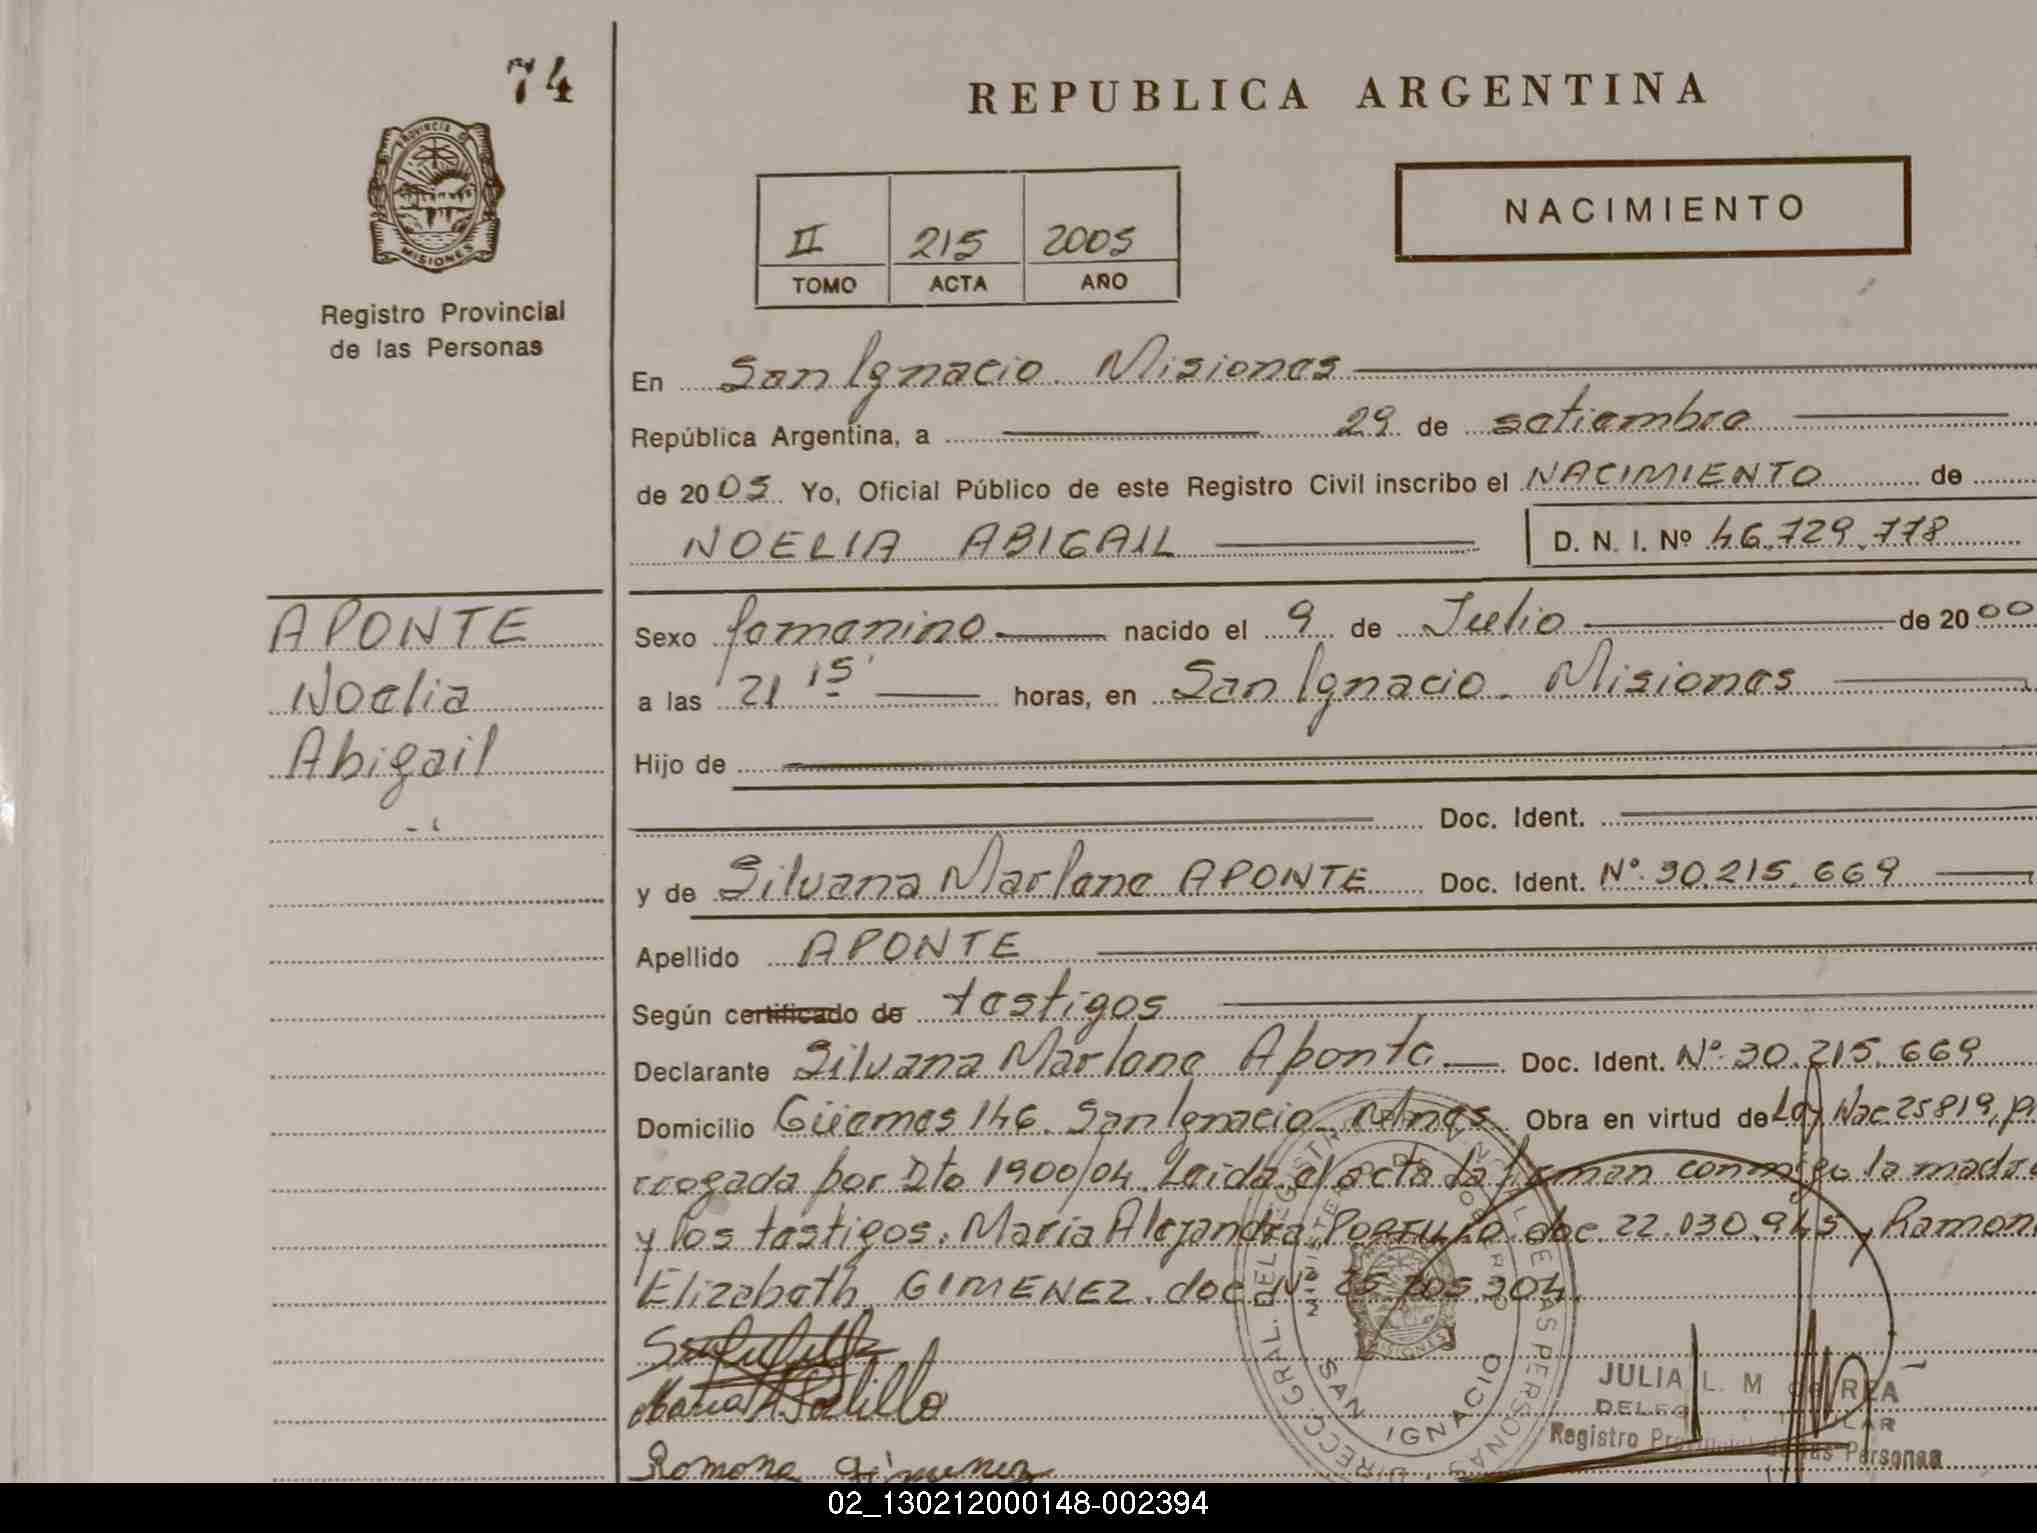 74
REPUBLICA ARGENTINA
PROVINCIA D
MISIONES
Registro Provincial
de las Personas
II 215 2005
TOMO ACTA AÑO
NACIMIENTO
En San Ignacio. Misiones
República Argentina, a 29 de setiembre
de 2005 Yo, Oficial Público de este Registro Civil inscribo el NACIMIENTO de
NOELIA ABIGAIL D. N. I. Nº 46.729.778
APONTE
Noelia
Abigail
Sexo femenino nacido el 9 de Julio de 2000
a las 21 15' horas, en San Ignacio. Misiones
Hijo de
Doc. Ident.
y de Silvana Marlene APONTE Doc. Ident. Nº 30.215.669
Apellido APONTE
Según certificado de testigos
Declarante Silvana Marlene Aponte Doc. Ident. Nº 30.215.669
Domicilio Güemes 146. San Ignacio. Mnes. Obra en virtud de Ley Nac. 25819, p
rrogada por Dto 1900/04. Leida el acta la firman conmigo la madre
y los testigos: María Alejandra PORTILLO doc. 22.030.945, Ramon
Elizabeth GIMENEZ. doc Nº 25.205.304.
Maria A. Portillo
Ramona Gimenez
SAN IGNACIO
JULIA L. M de REA
Registro Provincial de las Personas
02_130212000148-002394